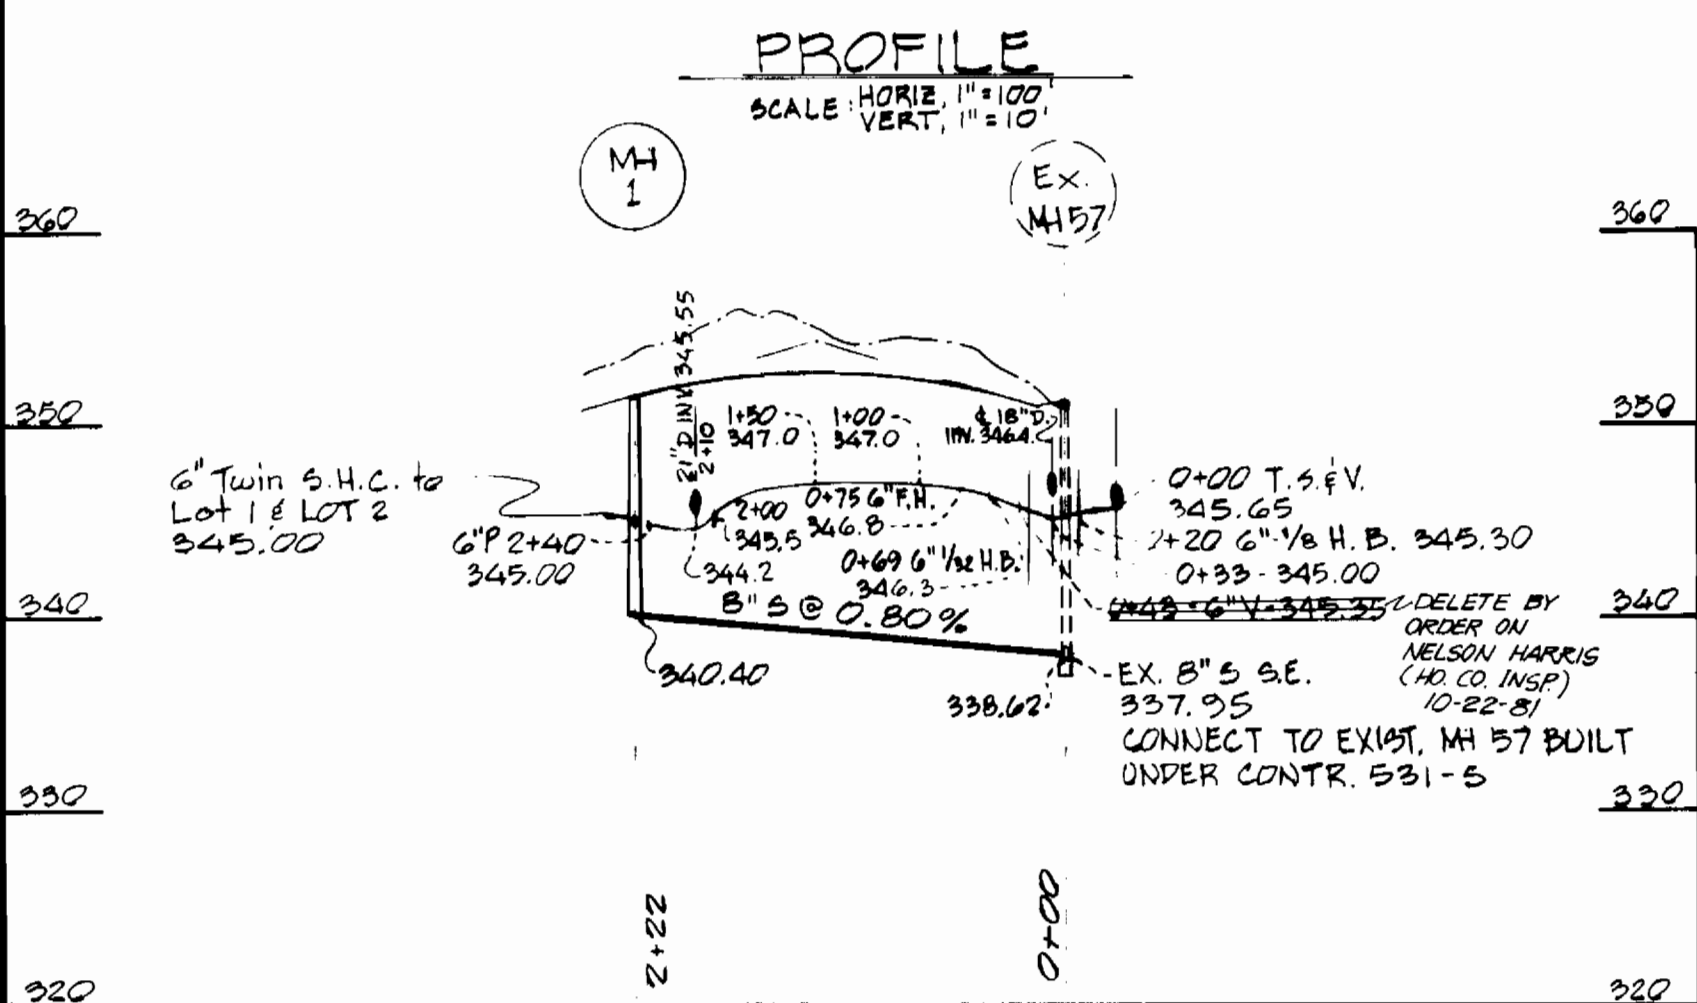 PROFILE
SCALE: HORIZ, 1"=100'
VERT, 1"=10'
MH
1
Ex.
MH 57
360
360
350
350
340
340
330
330
320
320
21" D INV 345.55
2+10
1+50
347.0
1+00
347.0
¢ 18" D.
INV. 346.4
6" Twin S.H.C. to
Lot 1 & LOT 2
345.00
6"P 2+40
345.00
2+00
345.5
344.2
0+75 6" F.H.
346.8
0+69 6" 1/32 H.B.
346.3
8" S @ 0.80%
340.40
338.62
0+00 T.S.&V.
345.65
2+20 6"-1/8 H.B. 345.30
0+33-345.00
0+43-6"V-345.35
DELETE BY
ORDER ON
NELSON HARRIS
(HO. CO. INSP.)
10-22-81
EX. 8" S S.E.
337.95
CONNECT TO EXIST. MH 57 BUILT
UNDER CONTR. 531-S
2+22
0+00